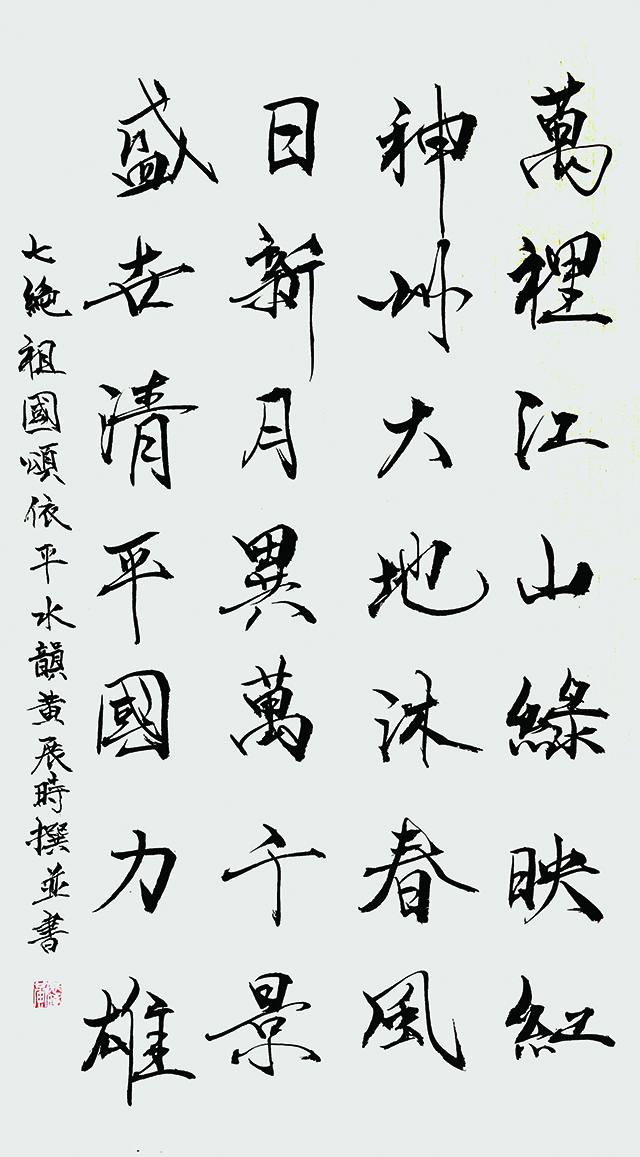 萬裡江山綠映紅
神州大地沐春風
日新月異萬千景
盛世清平國力雄
七絶祖國頌依平水韻黄展時撰並書